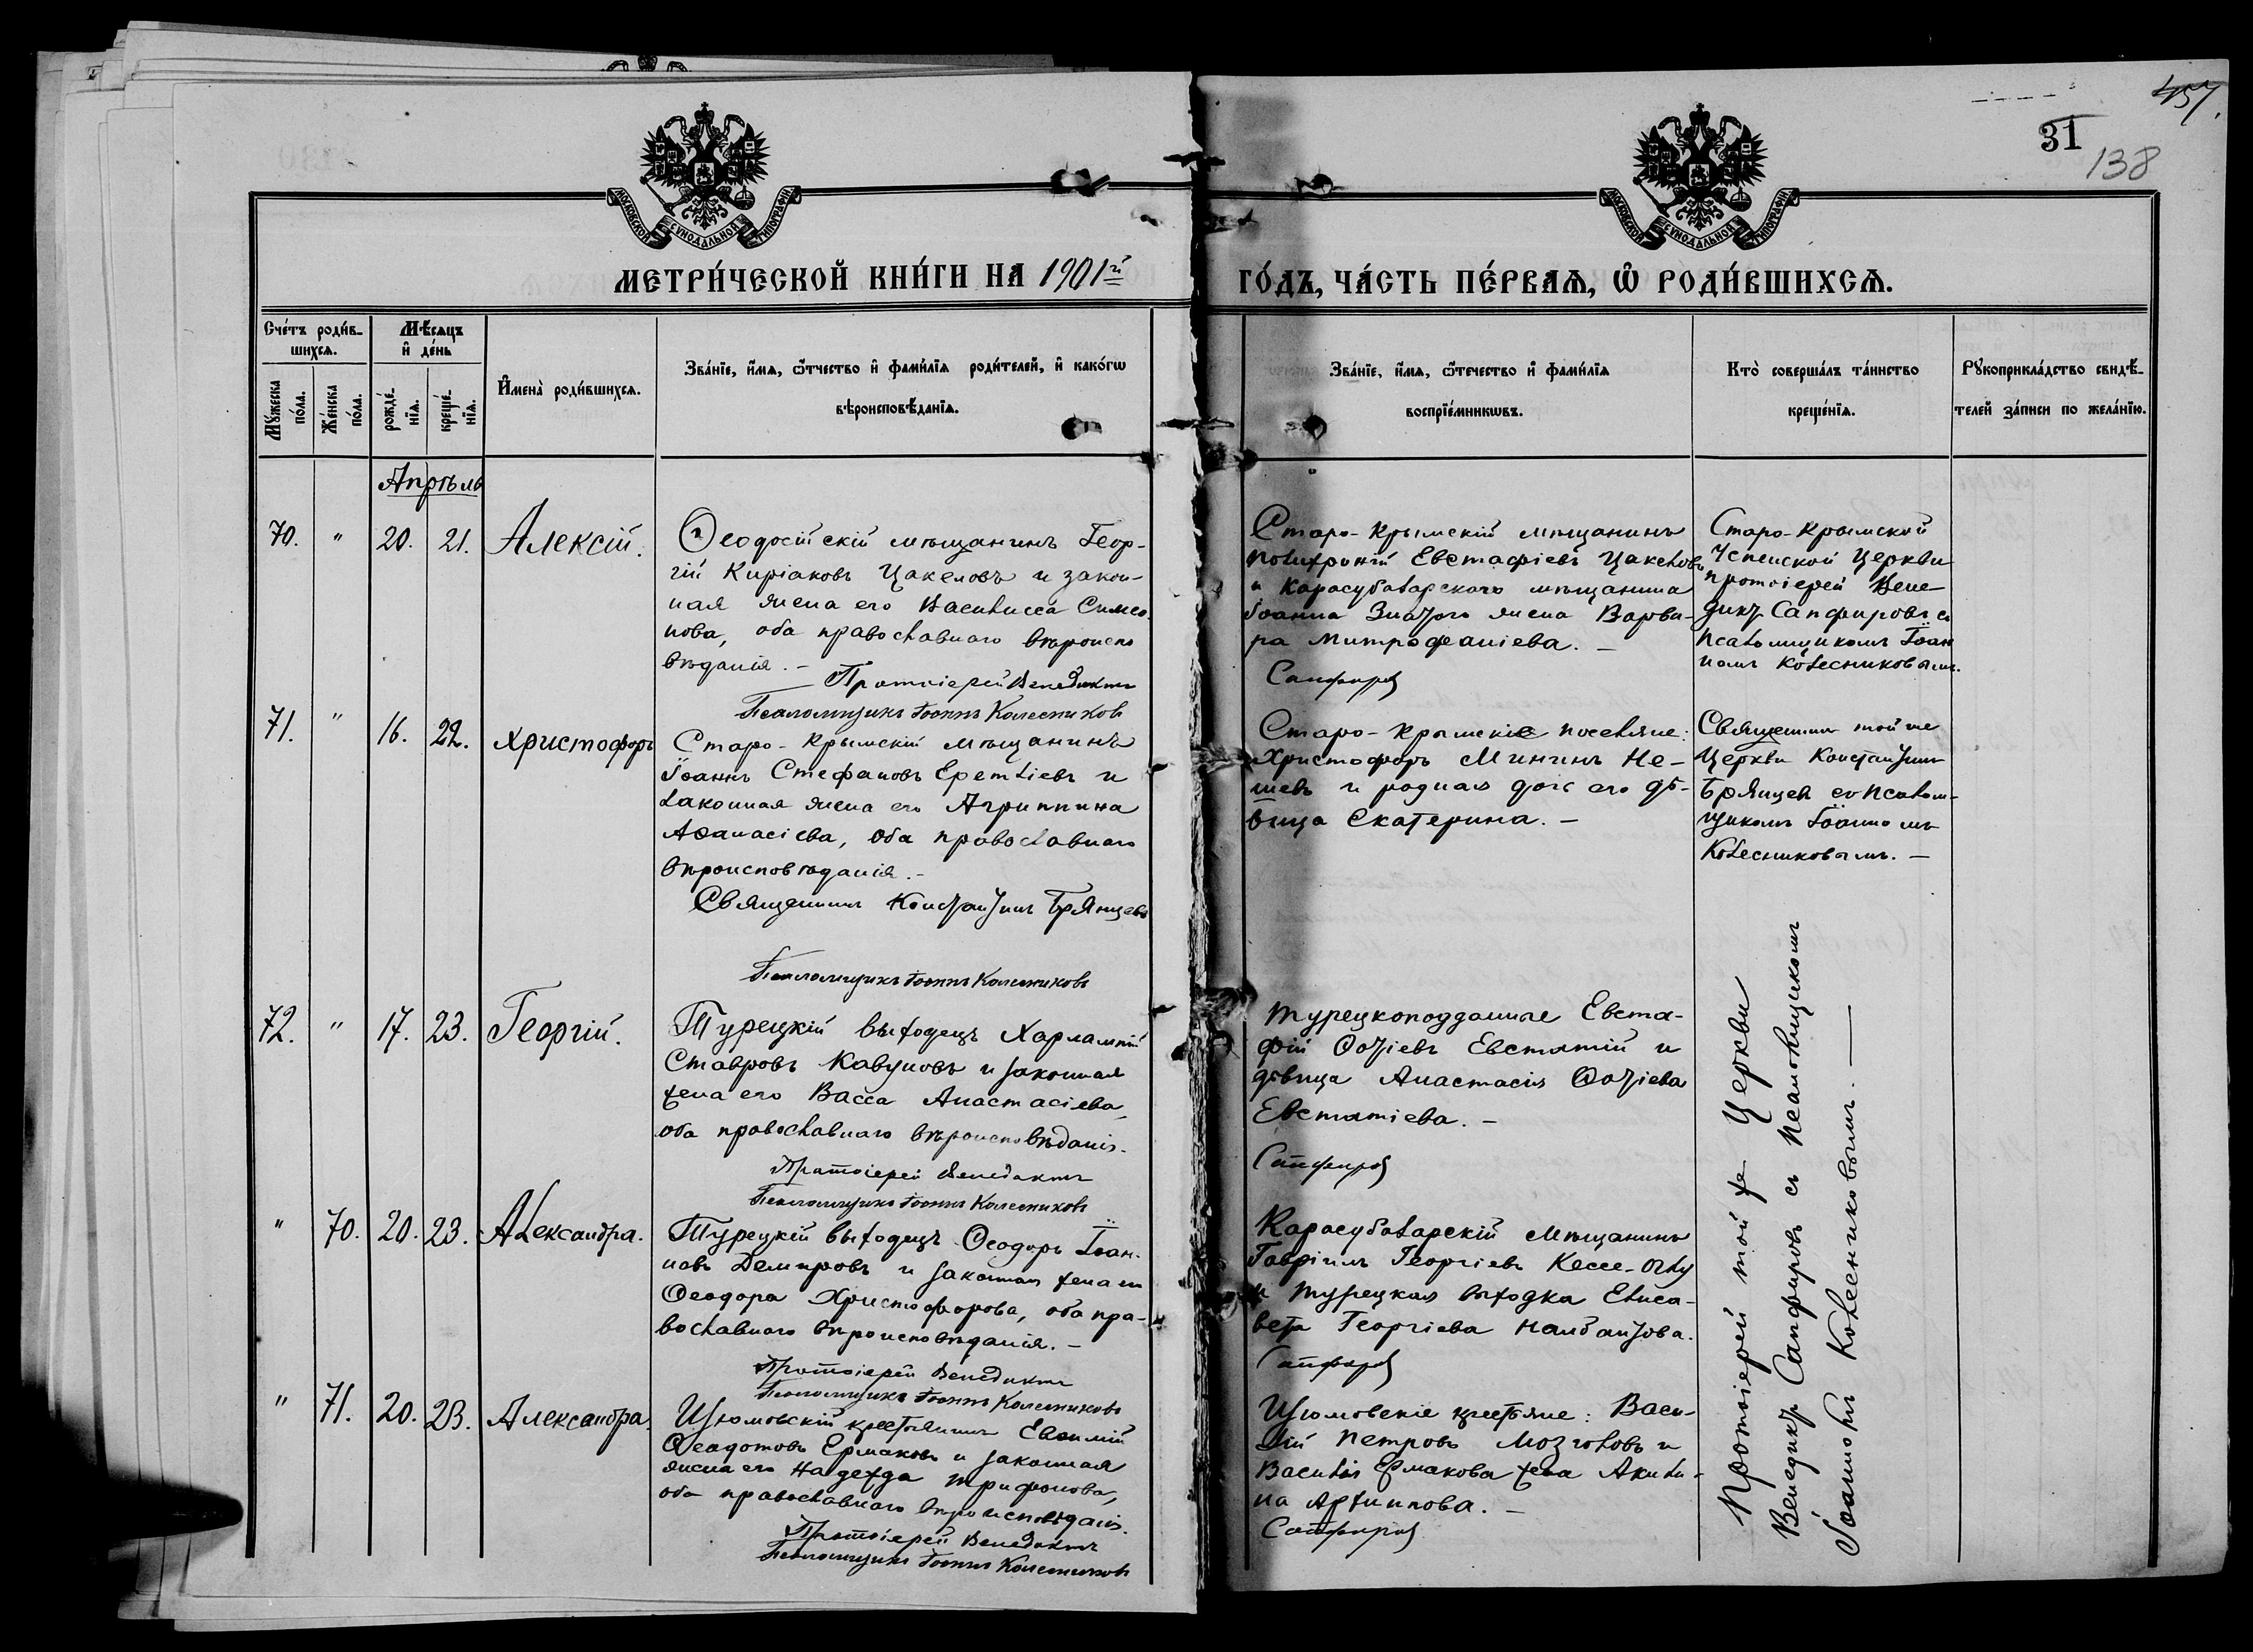 457.
31
138
МОСКОВСКОЙ СѴНОДАЛЬНОЙ ТИПОГРАФІИ
МОСКОВСКОЙ СѴНОДАЛЬНОЙ ТИПОГРАФІИ
МЕТРИ́ЧЕСКОЙ КНИ́ГИ НА 1901й
ГО́ДЪ, ЧА́СТЬ ПЕ́РВАѦ, Ѡ҆ РОДИ́ВШИХСѦ.
Сче́тъ роди́в-
шихсѧ.
Мꙋ́жеска
по́ла.
Же́нска
по́ла.
Мѣ́сѧцъ
и҆ де́нь
рожде́-
нїѧ.
креще́-
нїѧ.
И҆мена̀ роди́вшихсѧ.
Зва́нїе, и҆́мѧ, ѻ҆́тчество и҆ фами́лїѧ роди́телей, и҆ како́гѡ
вѣроисповѣ́данїѧ.
Зва́нїе, и҆́мѧ, ѻ҆те́чество и҆ фами́лїѧ
воспрїе́мникѡвъ.
Кто̀ соверша́лъ та́инство
креще́нїѧ.
Рꙋкоприкла́дство свидѣ́-
телей за́писи по жела́нїю.
Апрѣль
70. " 20. 21. Алексій.
Ѳеодосійскій мѣщанинъ Геор-
гій Киріаковъ Цакеловъ и закон-
ная жена его Василисса Симео-
нова, оба православнаго вѣроиспо
вѣданія. –
Протоіерей Венедиктъ
Псаломщикъ Іоаннъ Колесниковъ
Старо-Крымскій мѣщанинъ
Полихроній Евстафіевъ Цакеловъ
и Карасубазарскаго мѣщанина
Іоанна жена Варва-
ра Митрофаніева. –
Сапфировъ
Старо-Крымской
Успенской Церкви
протоіерей Вене
диктъ Сапфировъ съ
псаломщикомъ Іоан
номъ Колесниковымъ.
71. " 16. 22. Христофоръ
Старо-Крымскій мѣщанинъ
Іоаннъ Стефановъ Еремѣіевъ и
законная жена его Агриппина
Аѳанасіева, оба православнаго
вѣроисповѣданія. –
Священникъ Константинъ Брянцевъ
Псаломщикъ Іоаннъ Колесниковъ
Старо-Крымскіе поселяне:
Христофоръ Мининъ Не-
шевъ и родная дочь его дѣ-
вица Екатерина. –
Священникъ той же
Церкви Константинъ
Брянцевъ съ псалом-
щикомъ Іоанномъ
Колесниковымъ. –
72. " 17. 23. Георгій.
Турецкій выходецъ Харлампій
Ставровъ Кавуновъ и законная
жена его Васса Анастасіева,
оба православнаго вѣроисповѣданія.
Протоіерей Венедиктъ
Псаломщикъ Іоаннъ Колесниковъ
Турецкоподданные Евста-
фій Ѳотіевъ Евстатій и
дѣвица Анастасія Ѳотіева
Евстатіева. –
Сапфировъ
" 70. 20. 23. Александра.
Турецкій выходецъ Ѳеодоръ Іоан-
новъ Демировъ и законная жена его
Ѳеодора Христофорова, оба пра-
вославнаго вѣроисповѣданія. –
Протоіерей Венедиктъ
Псаломщикъ Іоаннъ Колесниковъ
Карасубазарскій мѣщанинъ
Гавріилъ Георгіевъ Кессе-Оглу
и турецкая выходка Елиса-
вета Георгіева Налбантова.
Сапфировъ
" 71. 20. 23. Александра.
Изюмовскій крестьянинъ Евѳимій
Ѳеодотовъ Ермаковъ и законная
жена его Надежда Трифонова,
оба православнаго вѣроисповѣданія.
Протоіерей Венедиктъ
Псаломщикъ Іоаннъ Колесниковъ
Изюмовскіе крестьяне: Васи-
лій Петровъ Мозголовъ и
Василія Ермакова жена Акили-
на Архипова. –
Сапфировъ
Протоіерей той же Церкви
Венедиктъ Сапфировъ съ псаломщикомъ
Іоанномъ Колесниковымъ. –